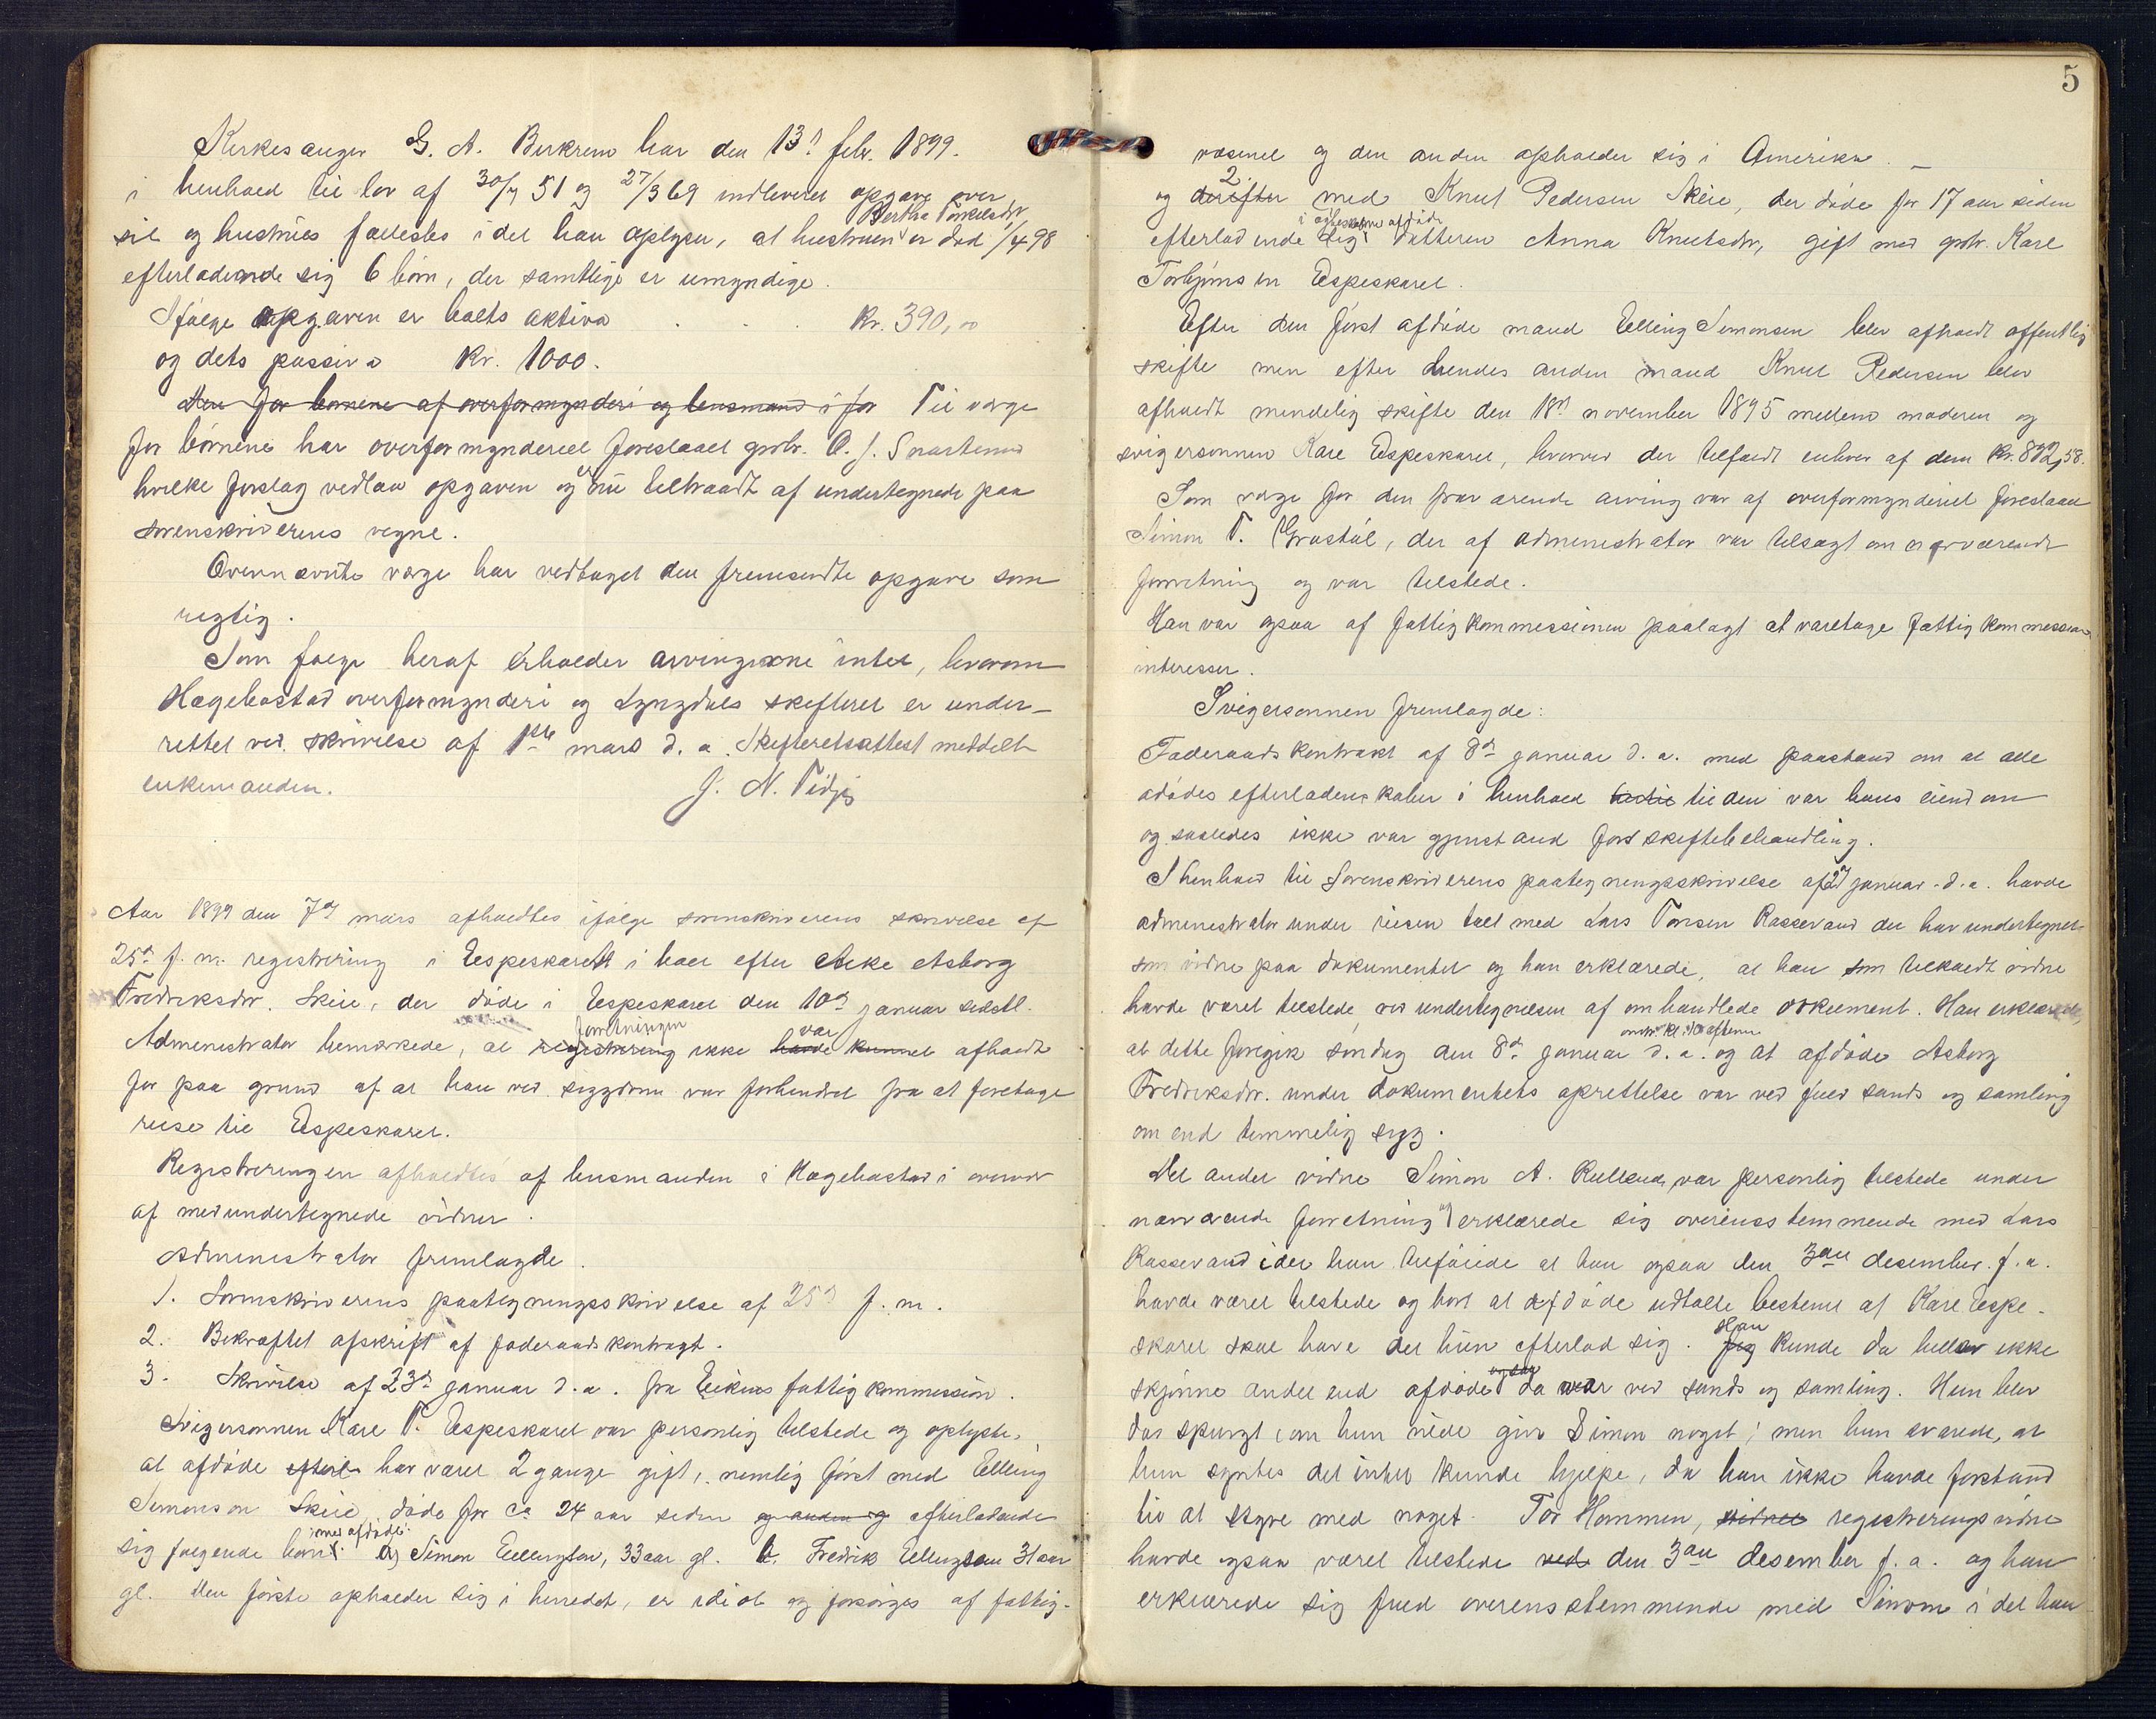 Kirkesanger G. A. Birkrem har den 13d febr. 1899.
i henhold til lov af 30/7 51 og 27/3 69 indleveret opgave over
sit og hustrues fællesbo idet han oplyser, at hustruen Bertha Torkelsdtr. er død 1/4 98
efterladende sig 6 børn, der samtlige er umyndige.
Ifølge opgaven er boets aktiva . . . Kr. 390,00
og dets passiva Kr. 1000.
Den for børnene af overformynderi og lensmand i for Til værge
for børnene har overformynderiet foreslaaet grbr. O. J. Snartemo
hvilke forslag vedlaa opgaven og er nu tiltraadt af undertegnede paa
sorenskriverens vegne.
Ovennævnte værge har vedtaget den fremsendte opgave som
rigtig.
Som følge heraf erholder arvingerne intet, hvorom
Hægebostad overformynderi og Lyngdals skifteret er under-
rettet ved skrivelse af 1ste mars d. a. Skifteretsattest meddelt
enkemanden. J. N. Tidjø
Aar 1899 den 7d mars afholdtes ifølge sorenskriverens skrivelse af
25d f. m. registrering i Eespeskaret i boet efter enke Asborg
Fredriksdtr. Skeie, der døde i Eespeskaret den 10d januar sidstl.
Administrator bemærkede, at registrering forretningen ikke havde kunnet var afholdt
før paa grund af at han ved sygdom var forhindret fra at foretage
reise til Espeskaret.
Registreringen afholdtes af lensmanden i Hægebostad i overvær
af medundertegnede vidner.
Administrator fremlagde.
1. Sorenskriverens paategningsskrivelse af 25d f. m.
2. Bekræftet afskrift af føderaadskontragt.
3. Skrivelse af 23d januar d. a. fra Eikens fattigkommission.
Svigersønnen Karl T. Eespeskaret var personlig tilstede og oplyste,
at afdøde efterl har været 2 gange gift, nemlig først med Elling
Simonson Skeie, døde for ca 24 aar siden og anden og efterladende
sig følgende børn med afdøde: a) Simon Ellingsen, 33 aar gl. b. Fredrik Ellingsen 31 aar
gl. Den første opholder sig i herredet, er idiot og forsørges af fattig-
5
væsenet og den anden opholder sig i Amerika. —
og derefter 2. med Knut Pedersen Skeie, der døde for 17 aar siden
efterladende sig i ægteskab med afdøde datteren Anna Knutsdtr, gift med grbr. Karl
Torbjørnsen Eespeskaret.
Efter den først afdøde mand Elling Simonsen blev afholdt offentlig
skifte men efter hendes anden mand Knut Pedersen blev
afholdt mindelig skifte den 18d november 1895 mellem moderen og
svigersønnen Karl Eespeskaret, hvorved der tilfaldt enhver af dem Kr. 892,58.
Som værge for den fraværende arving var af overformynderiet foreslaaet
Simon T. Grastøl, der af administrator var tilsagt om nærværende
forretning og var tilstede.
Han var ogsaa af fattigkommissionen paalagt at varetage fattigkommissions
interesser.
Svigersønnen fremlagde:
Føderaadskontrakt af 8d januar d. a. med paastand om at alle
afdødes efterladenskaber i henhold til den var hans eiendom
og saaledes ikke var gjenstand for skiftebehandling.
I henhold til sorenskriverens paategningsskrivelse af 25d januar d. a. havde
administrator under reisen talt med Lars Tørresen Rossevand der har undertegnet
som vidne paa dokumentet og han erklærede, at han som tilkaldt vidne
havde været tilstede ved undertegnelsen af omhandlede dokument. Han erklærede,
at dette foregik søndag den 8d januar d. a. omtr. kl. 10 aften og at afdøde Asborg
Fredriksdtr. under dokumentets oprettelse var ved fuld sands og samling
om end temmelig syg.
Det andet vidne Simon A. Rulland, var personlig tilstede under
nærværende forretning og erklærede sig overensstemmende med Lars
Rossevand idet han tilføiede at han ogsaa den 3die desember f. a.
havde været tilstede og hørt at afdøde udtalte bestemt at Karl Eespe-
skaret skal have det hun efterlod sig. Jeg Han kunde da heller ikke
skjønne andet end afdøde ogsaa da var ved sands og samling. Hun blev
da spurgt, om hun vilde give Simon noget; men hun svarede, at
hun syntes det intet kunde hjelpe, da han ikke havde forstand
til at styre med noget. Tor Hommen, vidnet registreringsvidne
havde ogsaa været tilstede ved den 3die desember f. a. og han
erklærede sig fuld overensstemmende med Simon idet han